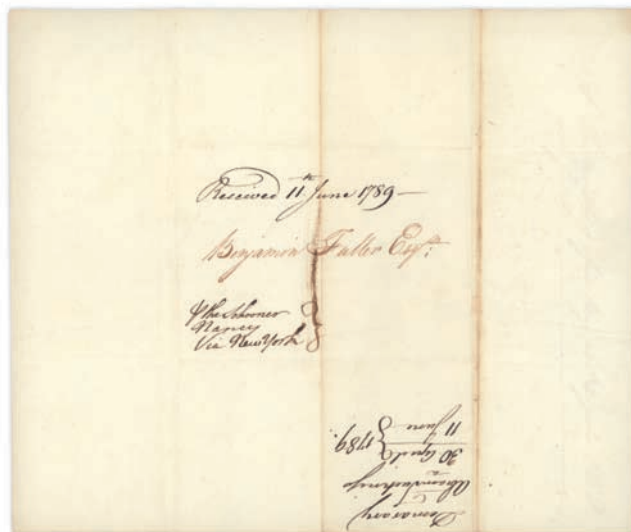 Received 11th June 1789 —
Benjamin Fuller Esqr:
⅌ the Schooner
Nancy
Via New York
Demarary
30 April
11 June
1789.